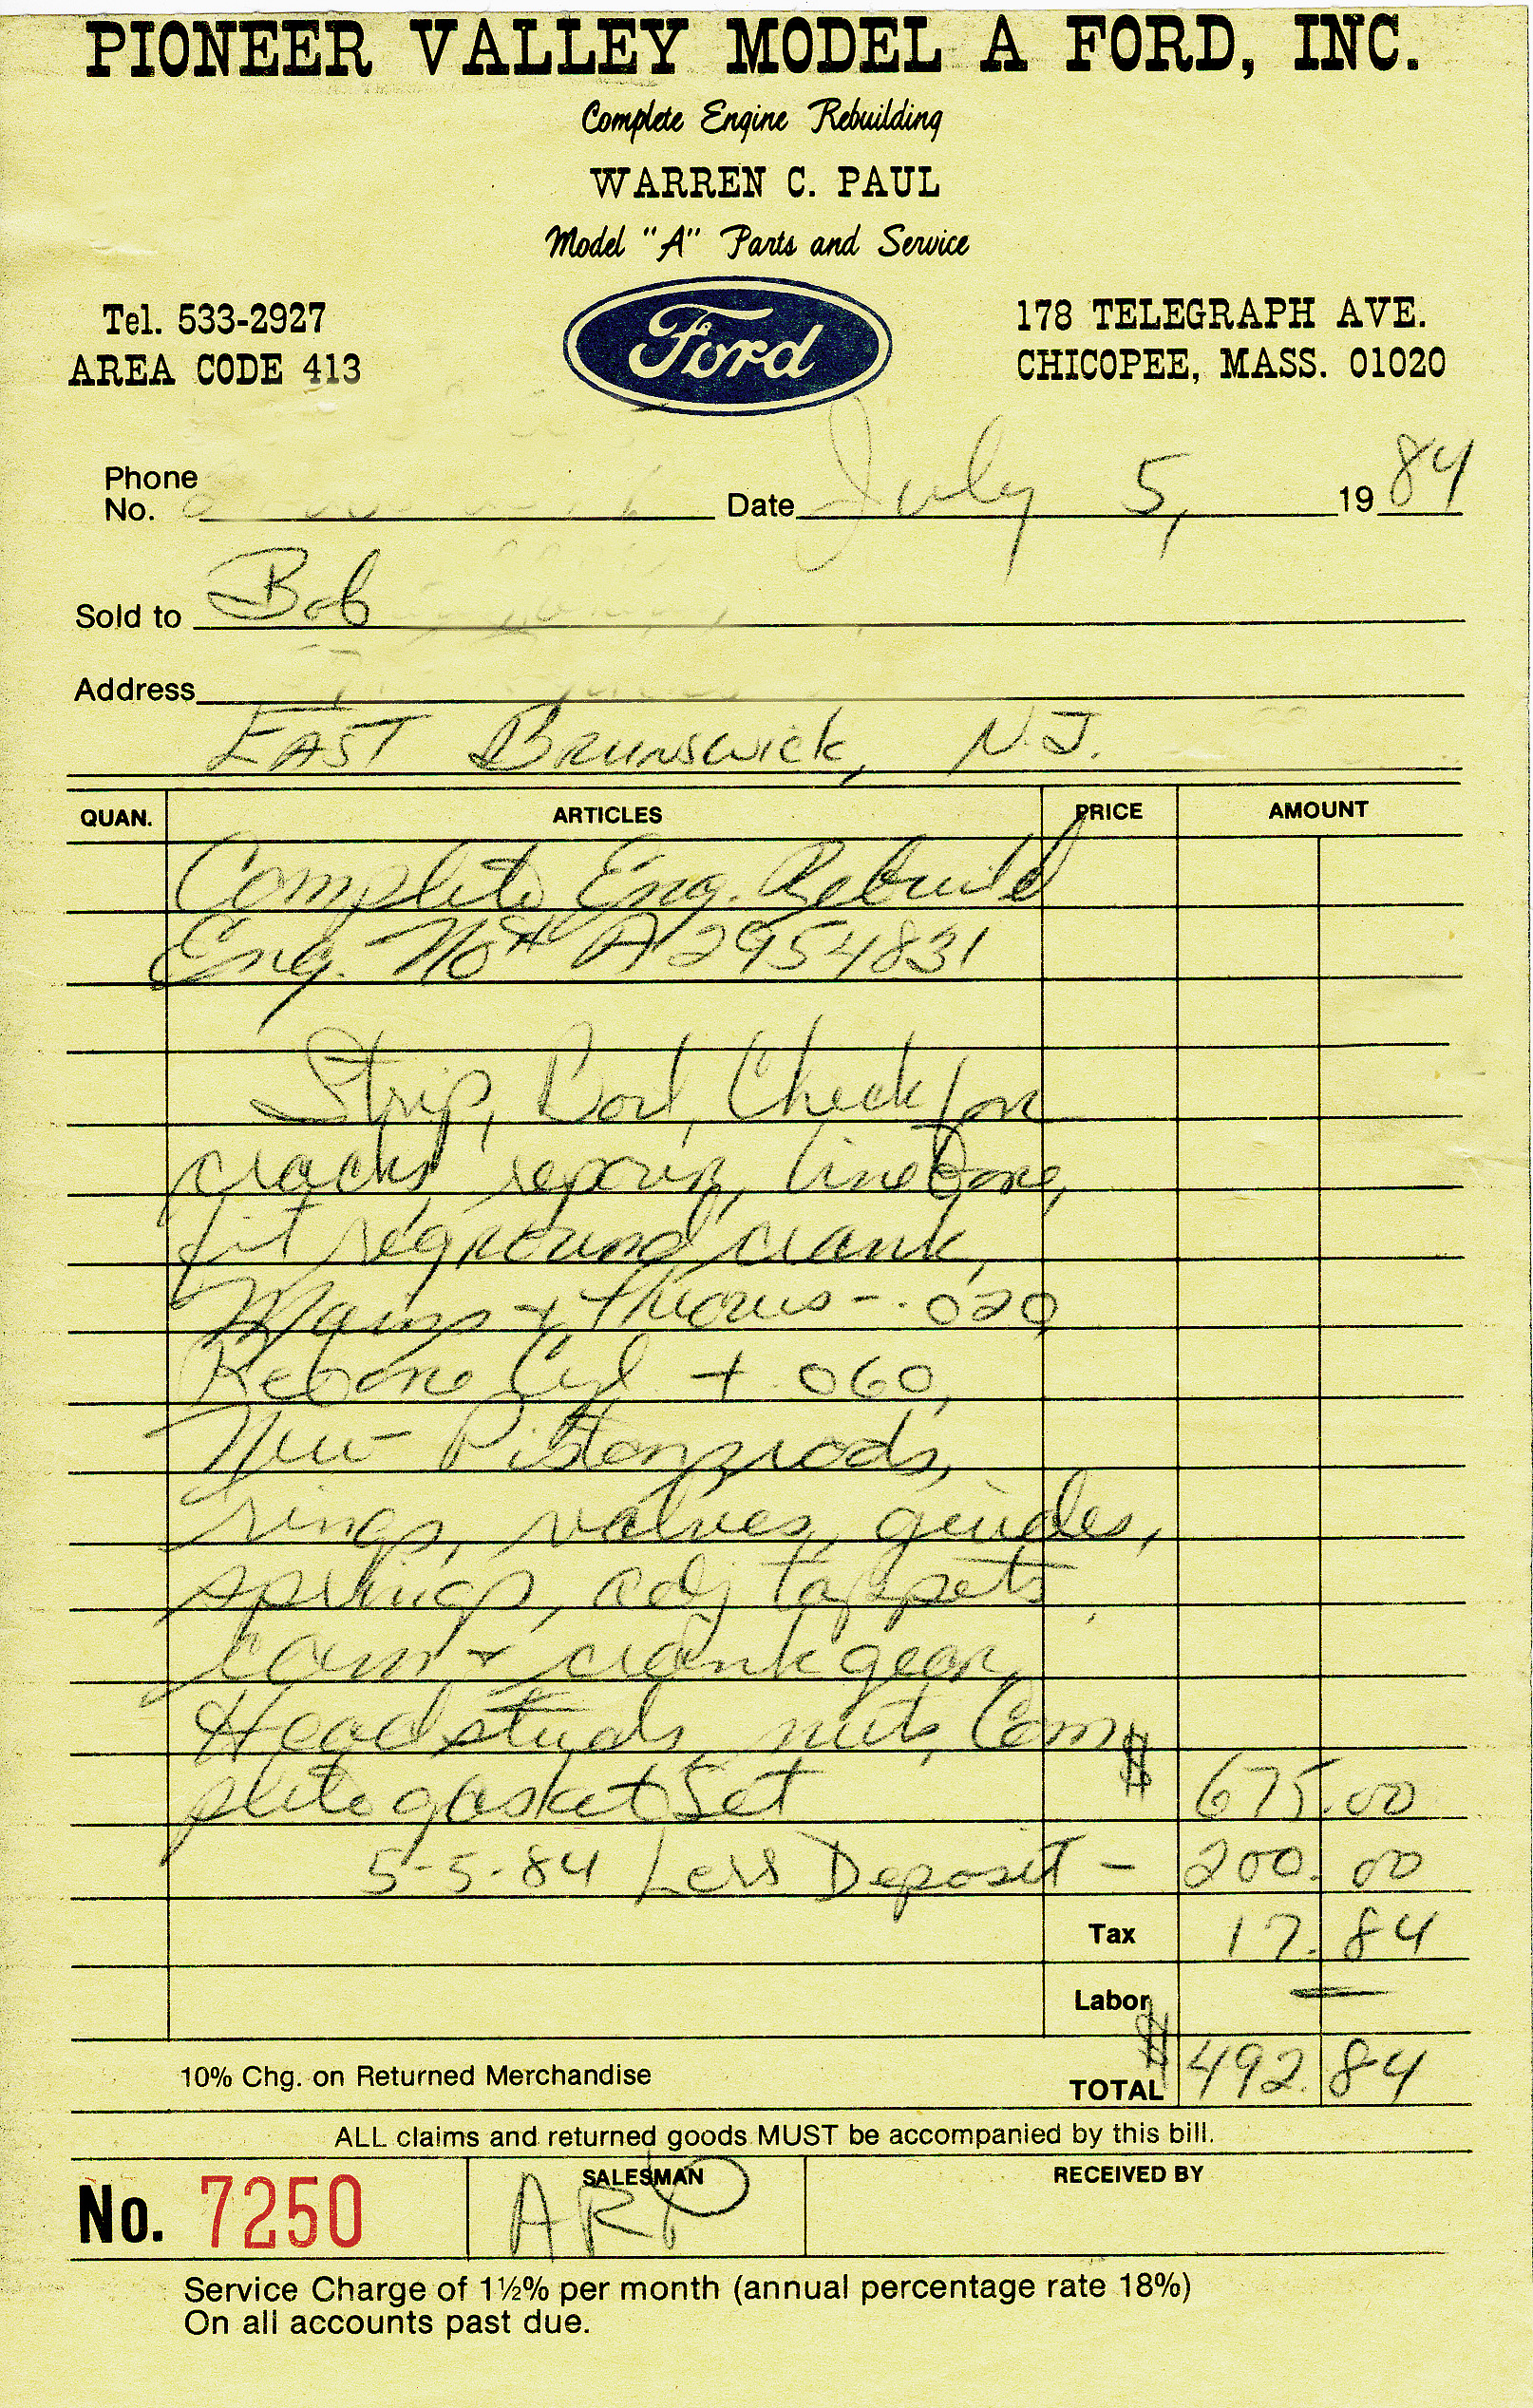 PIONEER VALLEY MODEL A FORD, INC.
Complete Engine Rebuilding
WARREN C. PAUL
Model "A" Parts and Service
Tel. 533-2927
AREA CODE 413
Ford
178 TELEGRAPH AVE.
CHICOPEE, MASS. 01020
Phone No. Date July 5, 1984
Sold to Bob
Address
EAST BRUNSWICK, N.J.
QUAN. ARTICLES PRICE AMOUNT
Complete Eng. Rebuild
Eng. No# A2954831
Strip, Boil, Check for
cracks, repair, line bore,
fit reground crank,
Mains + throws -.020
Rebore Cyl +.060,
New Pistons, rods,
rings, valves, guides,
springs, adj tappets,
cam + crank gear,
Head studs, nuts, Com
plete gasket Set $ 675.00
5-5-84 Less Deposit - 200.00
Tax 17.84
Labor —
10% Chg. on Returned Merchandise TOTAL $ 492.84
ALL claims and returned goods MUST be accompanied by this bill.
No. 7250 SALESMAN ARP RECEIVED BY
Service Charge of 1½% per month (annual percentage rate 18%)
On all accounts past due.